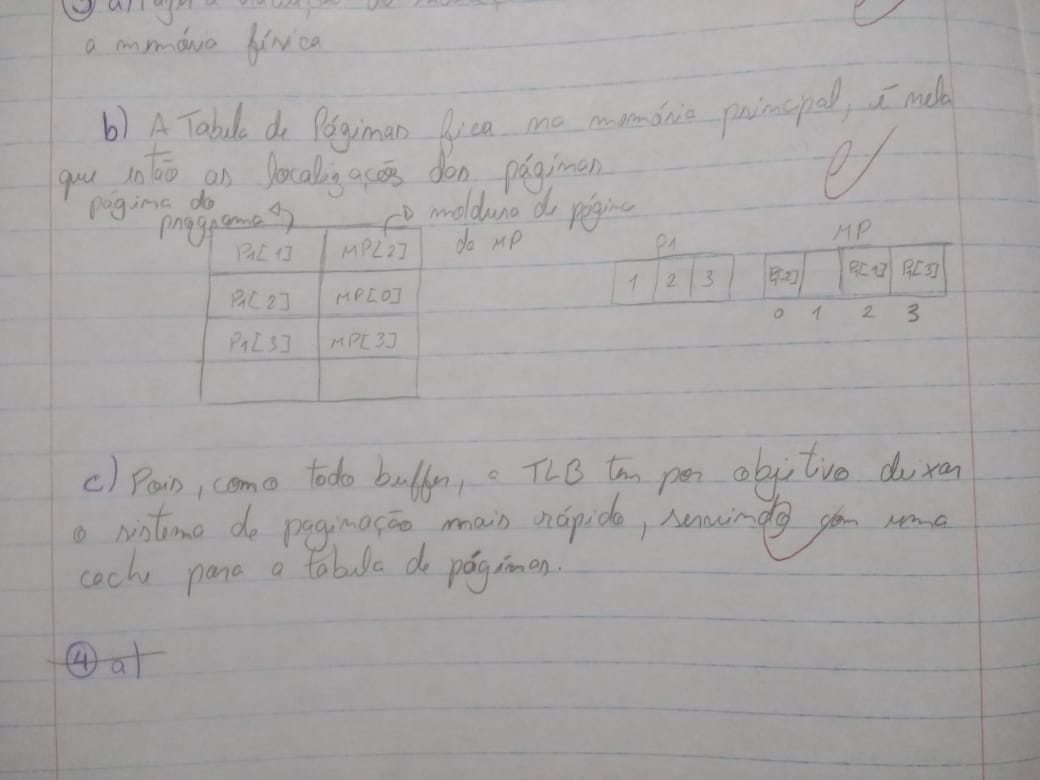 a memória física
b) A Tabela de Páginas fica na memória principal, é nela
que estão as localizações das páginas
página do
programa
moldura de página
da MP
P1[1] MP[2]
P1[2] MP[0]
P1[3] MP[3]
P1
1 2 3
MP
P1[2] P1[1] P1[3]
0 1 2 3
c) Pois, como todo buffer, a TLB tem por objetivo deixar
o sistema de paginação mais rápido, servindo com uma
cache para a tabela de páginas.
4 a)